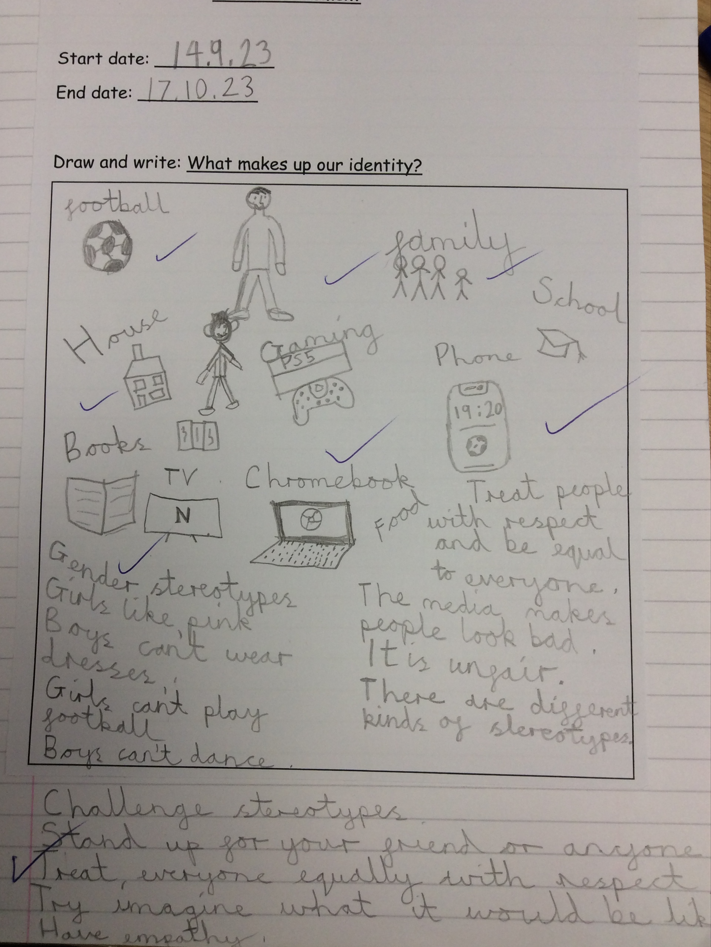 Start date: 14.9.23
End date: 17.10.23
Draw and write: What makes up our identity?
football
family
School
House
Gaming
PS5
Phone
19:20
Books
TV
N
Chromebook
Food
Treat people
with respect
and be equal
to everyone.
Gender stereotypes
Girls like pink
Boys can't wear
dresses.
Girls can't play
football
Boys can't dance.
The media makes
people look bad.
It is unfair.
There are different
kinds of stereotypes.
Challenge stereotypes.
Stand up for your friend or anyone
Treat everyone equally with respect
Try imagine what it would be lik
Have empathy.